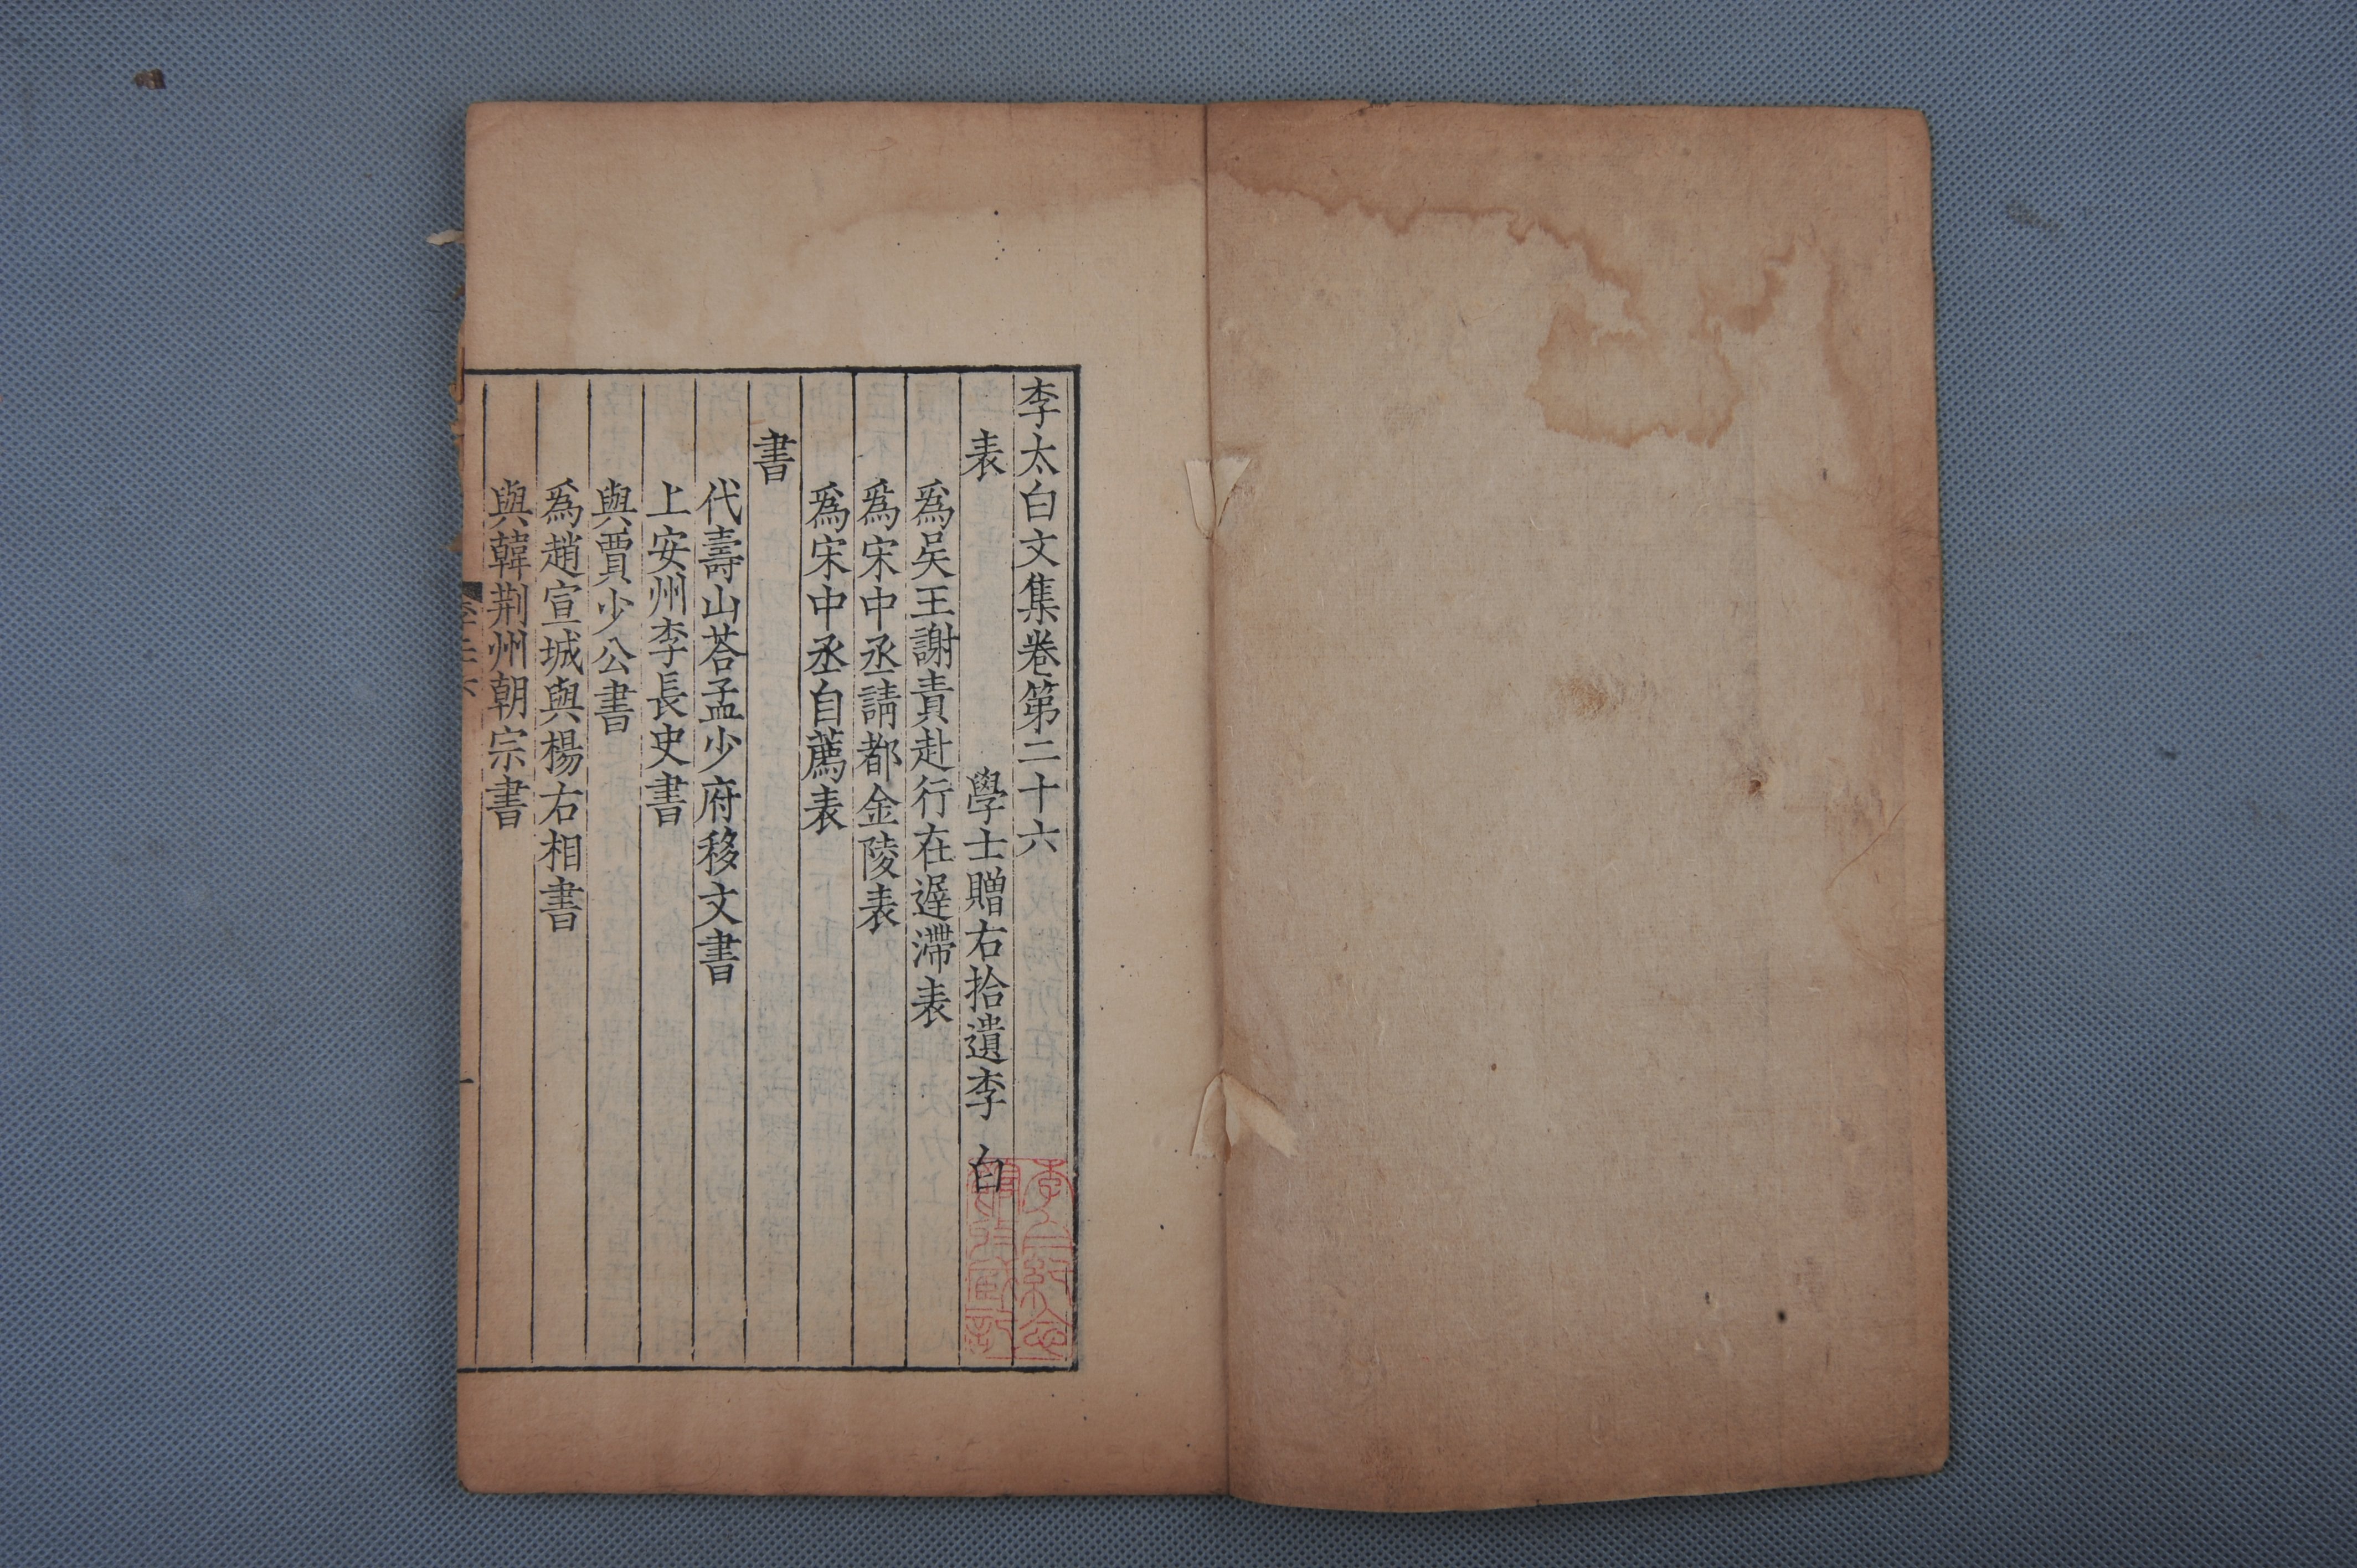 李太白文集卷第二十六
表　學士贈右拾遺李　白
爲吴王謝責赴行在遲滯表
爲宋中丞請都金陵表
爲宋中丞自薦表
書
代壽山荅孟少府移文書
上安州李長史書
與賈少公書
爲趙宣城與楊右相書
與韓荆州朝宗書
李二六
一